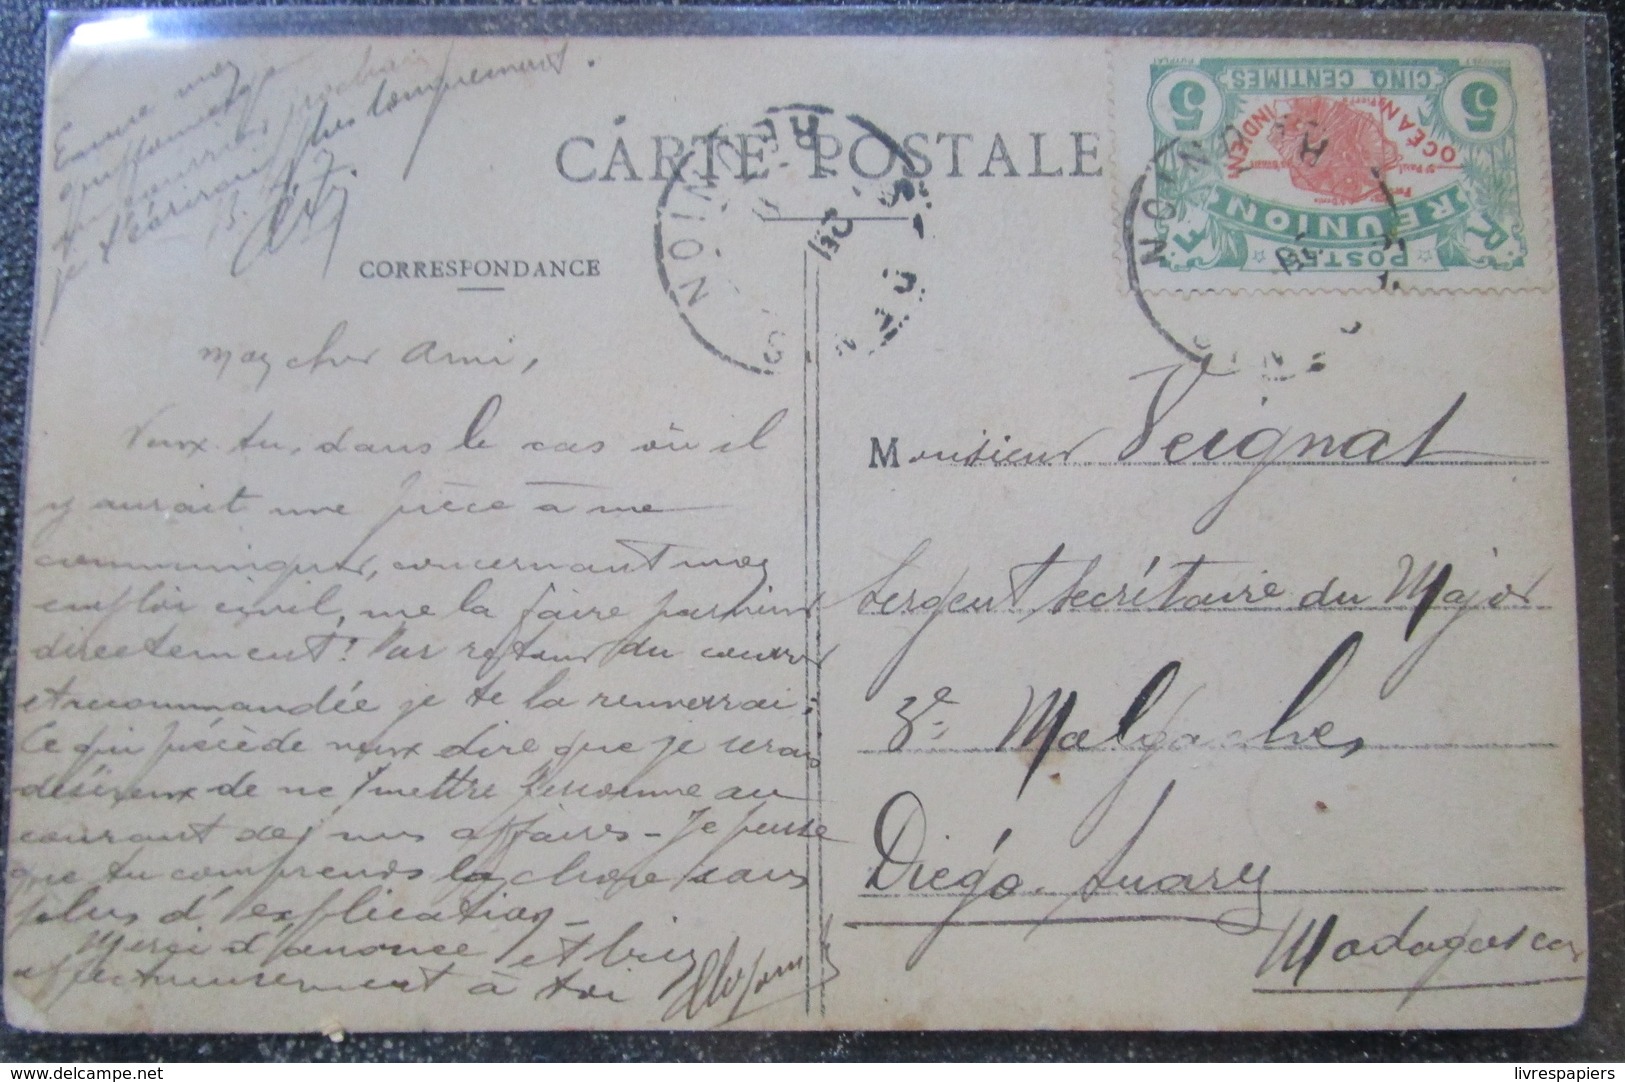 je t'écrirai plus longuement.
CARTE POSTALE
CORRESPONDANCE
5 CINQ CENTIMES 5
OCÉAN INDIEN
St Paul
RÉUNION
R POSTES F
Mon cher Ami,
Veux-tu, dans le cas où il
y aurait une pièce à me
communiquer, concernant mon
emploi civil, me la faire parvenir
directement? Par retour du courrier
et recommandée je te la renverrai;
Ce qui précède veux dire que je serais
désireux de ne mettre personne au
courant de mes affaires - Je pense
que tu comprends la chose sans
plus d'explication -
Merci d'avance et bien
affectueusement à toi
Monsieur Veignat
Sergent secrétaire du Major
3e Malgaches
Diégo-Suarez
Madagascar
www.delcampe.net
livrespapiers